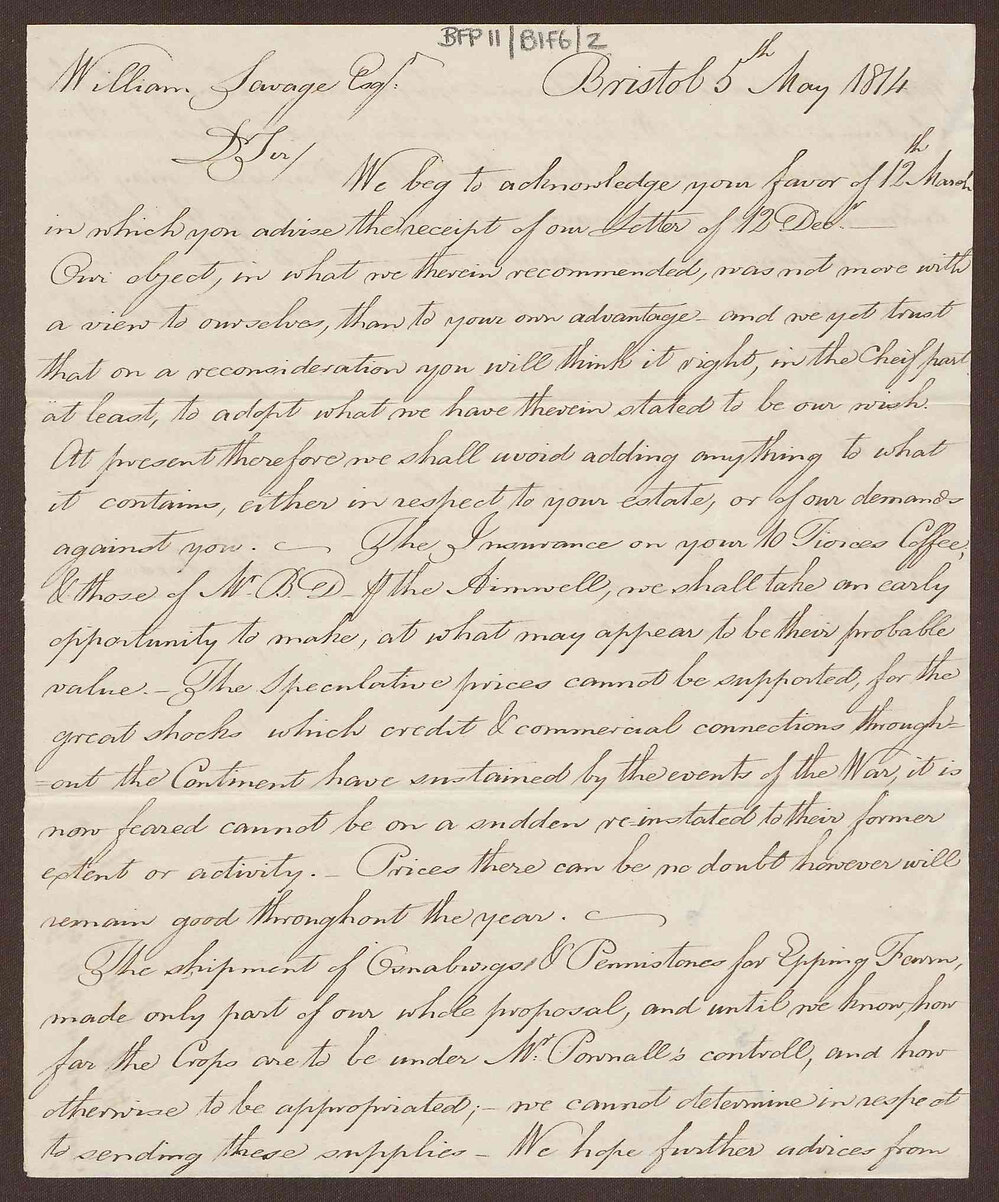 BFP 11/B1F6/2
William Savage Esqr. Bristol 5th May 1814
Dr Sir/
We beg to acknowledge your favor of 12th March
in which you advise the receipt of our Letter of 12 Decr. —
Our object, in what we therein recommended, was not more with
a view to ourselves, than to your own advantage - and we yet trust
that on a reconsideration you will think it right, in the Cheif part
at least, to adopt what we have therein stated to be our wish.
At present therefore we shall avoid adding anything to what
it contains, either in respect to your estate, or of our demands
against you. — The Insurance on your 10 Tierces Coffee,
& those of Mr. B D - the Aimwell, we shall take an early
opportunity to make, at what may appear to be their probable
value. - The speculative prices cannot be supported, for the
great shocks which credit & commercial connections through=
=out the Continent have sustained by the events of the War, it is
now feared cannot be on a sudden re-instated to their former
extent or activity. - Prices there can be no doubt however will
remain good throughout the year. —
The shipment of Osnaburgs & Pennistones for Epping Farm,
made only part of our whole proposal, and until we know how
far the Crops are to be under Mr. Pownall's controll, and how
otherwise to be appropriated; - we cannot determine in respect
to sending these supplies - We hope further advices from